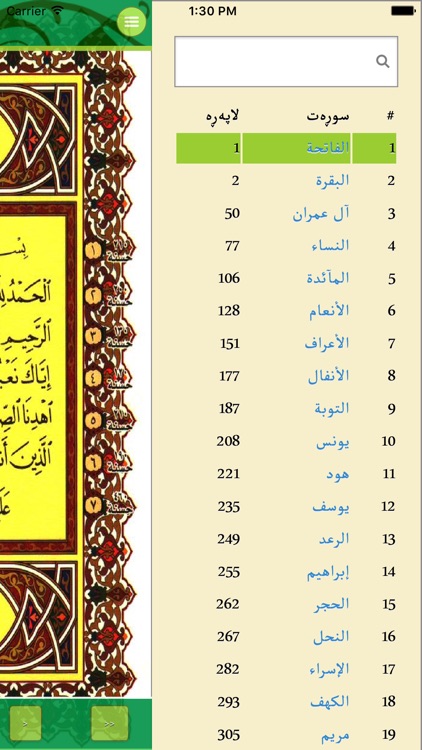 Carrier 1:30 PM
# سورەت لاپەڕە
1 الفاتحة 1
2 البقرة 2
3 آل عمران 50
4 النساء 77
5 المآئدة 106
6 الأنعام 128
7 الأعراف 151
8 الأنفال 177
9 التوبة 187
10 يونس 208
11 هود 221
12 يوسف 235
13 الرعد 249
14 إبراهيم 255
15 الحجر 262
16 النحل 267
17 الإسراء 282
18 الكهف 293
19 مريم 305
بِسْ
ٱلْحَمْدُ لِلَّهِ
ٱلرَّحِيمِ
إِيَّاكَ نَعْبُ
ٱهْدِنَا ٱلصِّ
ٱلَّذِينَ أَنْ
عَلَ
١
٢
٣
٤
٥
٦
٧
> >>